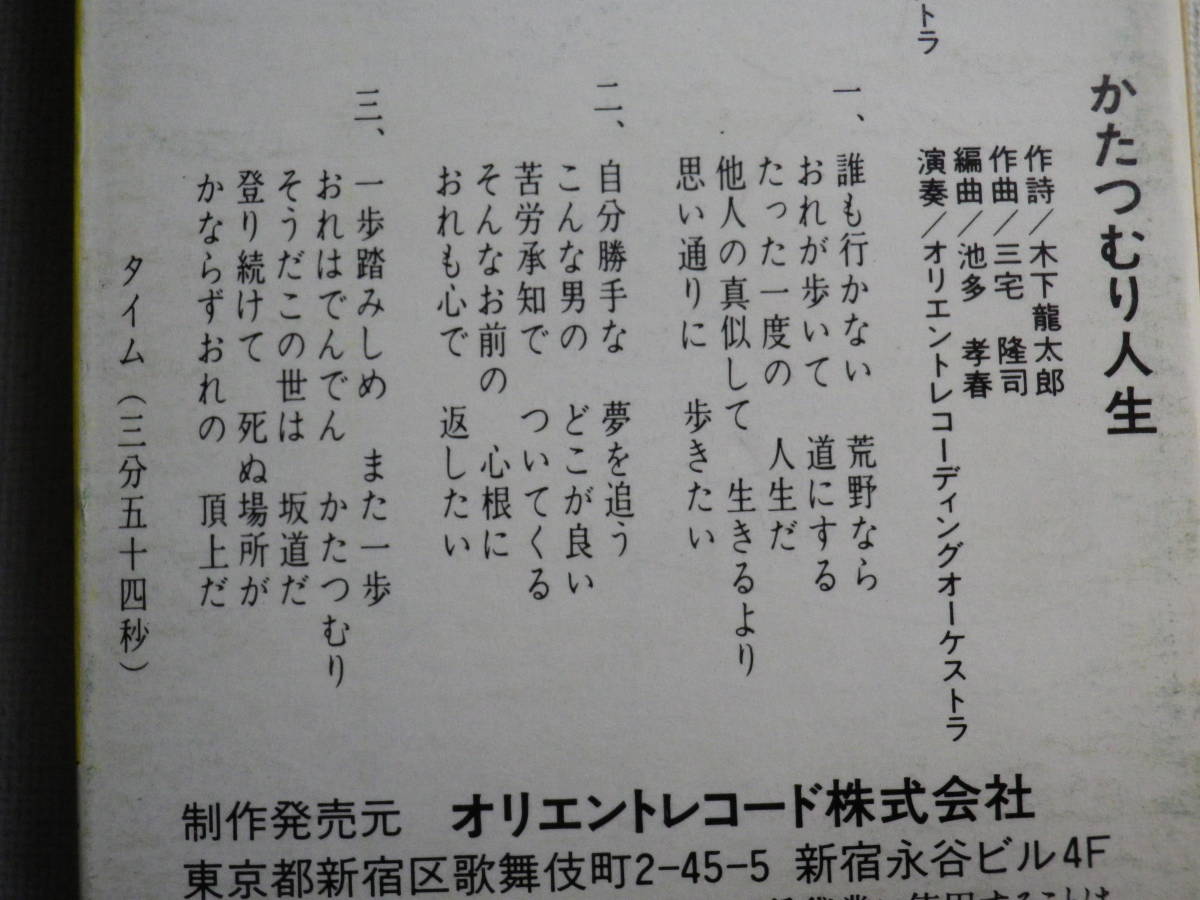 トラ
かたつむり人生
作詩／木下龍太郎
作曲／三宅 隆司
編曲／池多 孝春
演奏／オリエントレコーディングオーケストラ
一、
誰も行かない 荒野なら
おれが歩いて 道にする
たった一度の 人生だ
他人の真似して 生きるより
思い通りに 歩きたい
二、
自分勝手な 夢を追う
こんな男の どこが良い
苦労承知で ついてくる
そんなお前の 心根に
おれも心で 返したい
三、
一歩踏みしめ また一歩
おれはでんでん かたつむり
そうだこの世は 坂道だ
登り続けて 死ぬ場所が
かならずおれの 頂上だ
タイム（三分五十四秒）
制作発売元 オリエントレコード株式会社
東京都新宿区歌舞伎町2-45-5 新宿永谷ビル4F
使用することは